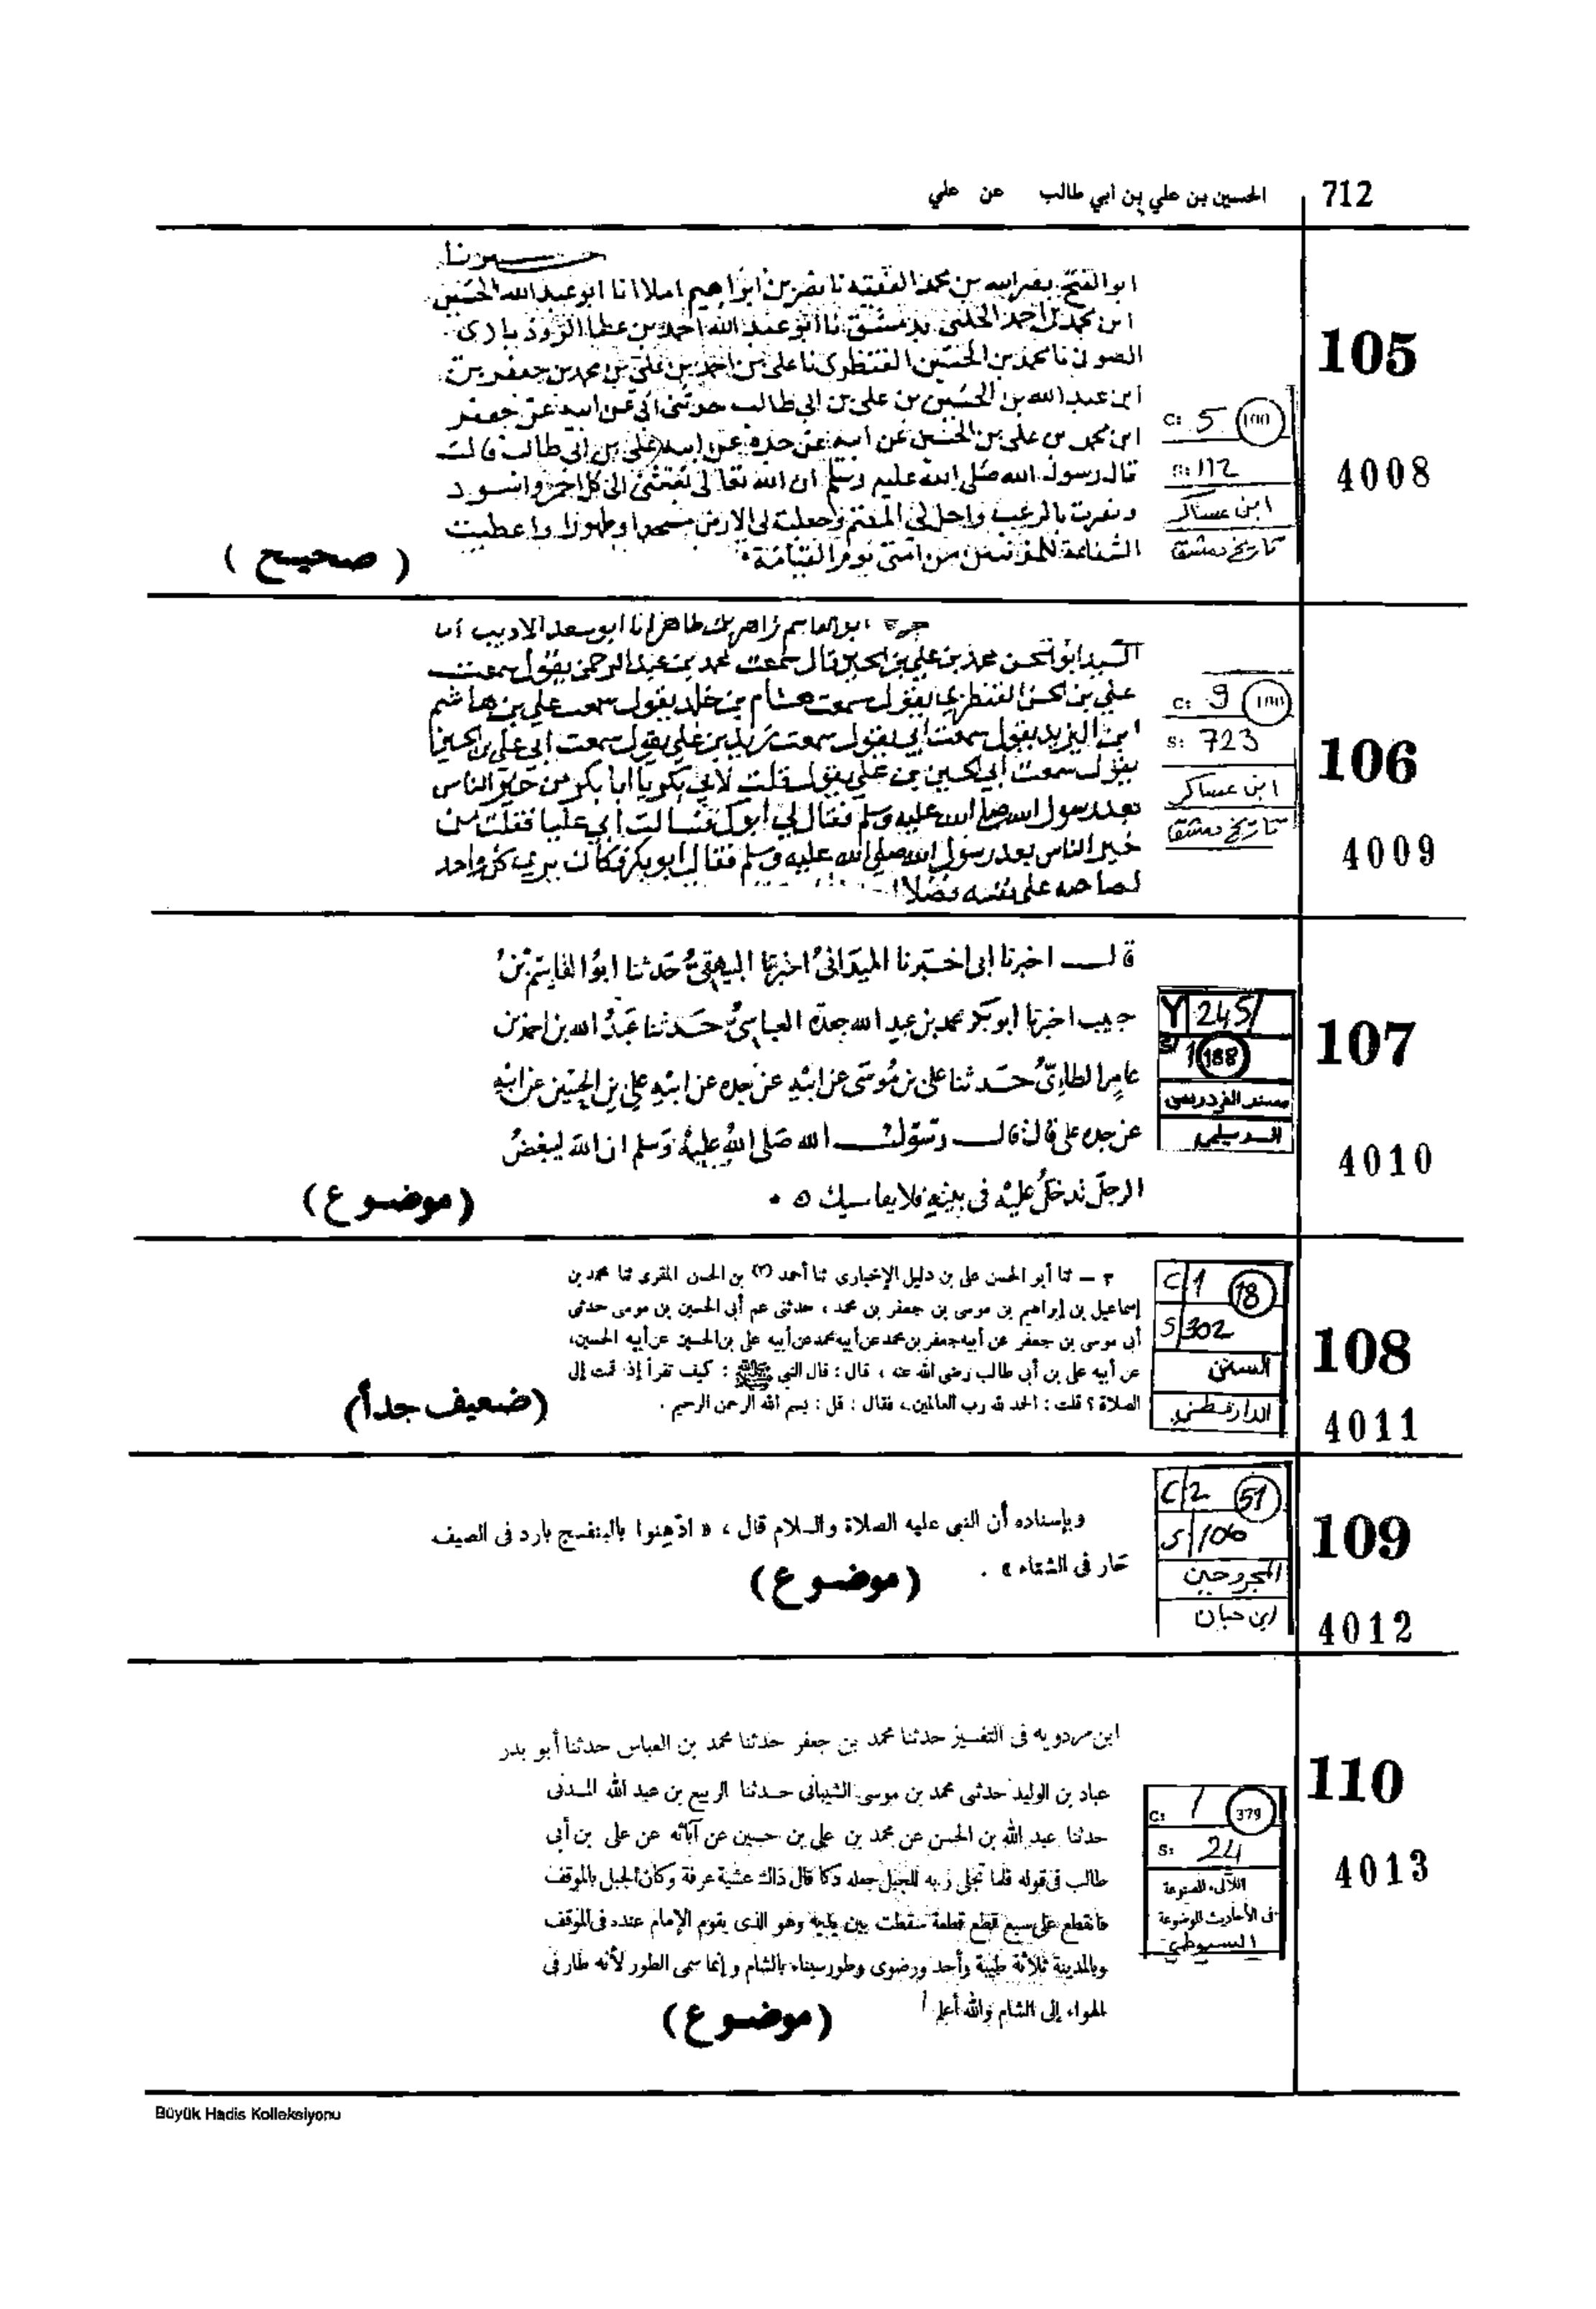 712
الحسين بن علي بن أبي طالب عن علي
105
4008
C: 5 100
S: 112
ابن عساكر
تاريخ دمشق
ابو الفتح نصر الله بن محمد الفقيه نا نصر بن ابراهيم املاا انا ابو عبد الله الحسين
ابن محمد بن احمد الحلبي بدمشق نا ابو عبد الله احمد بن عطا الروذباري
ابن عبد الله بن الحسين بن علي بن ابي طالب حدثني ابي عن ابيه عن جعفر
ابن محمد بن علي بن الحسين عن ابيه عن جده عن ابيه علي بن ابي طالب قالت
قال رسول الله صلى الله عليه وسلم ان الله تعالى بعثني الى كل احمر واسود
ونصرت بالرعب واحل لي المغنم وجعلت لي الارض مسجدا وطهورا واعطيت
الشفاعة للمذنبين من امتي يوم القيامة
(صحيح)
106
4009
C: 9 100
S: 723
ابن عساكر
تاريخ دمشق
ابو القاسم زاهر بن طاهر انا ابو سعد الاديب انا
السيد ابو الحسن محمد بن علي بن الحسين قال سمعت محمد بن عبد الرحمن يقول سمعت
علي بن الحسن القنطري يقول سمعت هشام بن خالد يقول سمعت علي بن هاشم
ابن البريد يقول سمعت ابي يقول سمعت زيد بن علي يقول سمعت ابي علي بن الحسين
يقول سمعت ابي الحسين بن علي يقول قلت لابي بكر يا ابا بكر من خير الناس
بعد رسول الله صلى الله عليه وسلم فقال لي ابوك فسالت ابي عليا فقلت من
خير الناس بعد رسول الله صلى الله عليه وسلم فقال ابو بكر فكان يرى كل واحد
لصاحبه على نفسه فضلا
107
4010
Y 245/
S/ 1 188
مسند الفردوس
الديلمي
قال اخبرنا ابى اخبرنا الميدانىُّ اخبرنا البيهقىُّ حدثنا ابو القاسم بن
حبيب اخبرنا ابو بكر محمد بن عبد الله جعدة العباسىُّ حدثنا عبد الله بن احمد بن
عامر الطاىُّ حدثنا على بن موسى عن ابيه عن جده عن ابيه علي بن الحسين عن ابيه
عن جده على قال قال رسول الله صلى الله عليه وسلم ان الله ليبغض
الرجل تدخل عليه فى بيته فلا يعاسيك ٥ ٠
(موضوع)
108
4011
C/1 18
S/302
السنن
الدارقطني
٣ — ثنا أبو الحسن على بن دليل الإخبارى ثنا أحمد (٢) بن الحسن المقرى ثنا محمد بن
إسماعيل بن إبراهيم بن موسى بن جعفر بن محمد ، حدثنى عم أبى الحسين بن موسى حدثنى
أبى موسى بن جعفر عن أبيه جعفر بن محمد عن أبيه محمد عن أبيه على بن الحسين عن أبيه الحسين،
عن أبيه على بن أبى طالب رضى الله عنه ، قال : قال النبي ﷺ : كيف تقرأ إذا قمت إلى
الصلاة ؟ قلت : الحمد لله رب العالمين، فقال : قل : بسم الله الرحمن الرحيم .
(ضعيف جداً)
109
4012
C/2 51
S/106
المجروحين
ابن حبان
وبإسناده أن النبي عليه الصلاة والسلام قال ، « ادّهِنوا بالبنفسج بارد فى الصيف
حار فى الشتاء » .
(موضوع)
110
4013
C: 1 379
S: 24
اللآلىء المصنوعة
فى الأحاديث الموضوعة
السيوطي
ابن مردويه فى التفسير حدثنا محمد بن جعفر حدثنا محمد بن العباس حدثنا أبو بدر
عباد بن الوليد حدثنى محمد بن موسى الشيبانى حدثنا الربيع بن عبد الله المدنى
حدثنا عبد الله بن الحسن عن محمد بن على بن حسين عن آبائه عن على بن أبى
طالب فى قوله فلما تجلى ربه للجبل جعله دكا قال ذاك عشية عرفة وكان الجبل بالموقف
فانقطع على سبع قطع قطعة سقطت بين يديه وهو الذى يقوم الإمام عنده فى الموقف
وبالمدينة ثلاثة طيبة وأحد ورضوى وطور سيناء بالشام وإنما سمى الطور لأنه طار فى
الهواء إلى الشام والله أعلم
(موضوع)
Büyük Hadis Kolleksiyonu